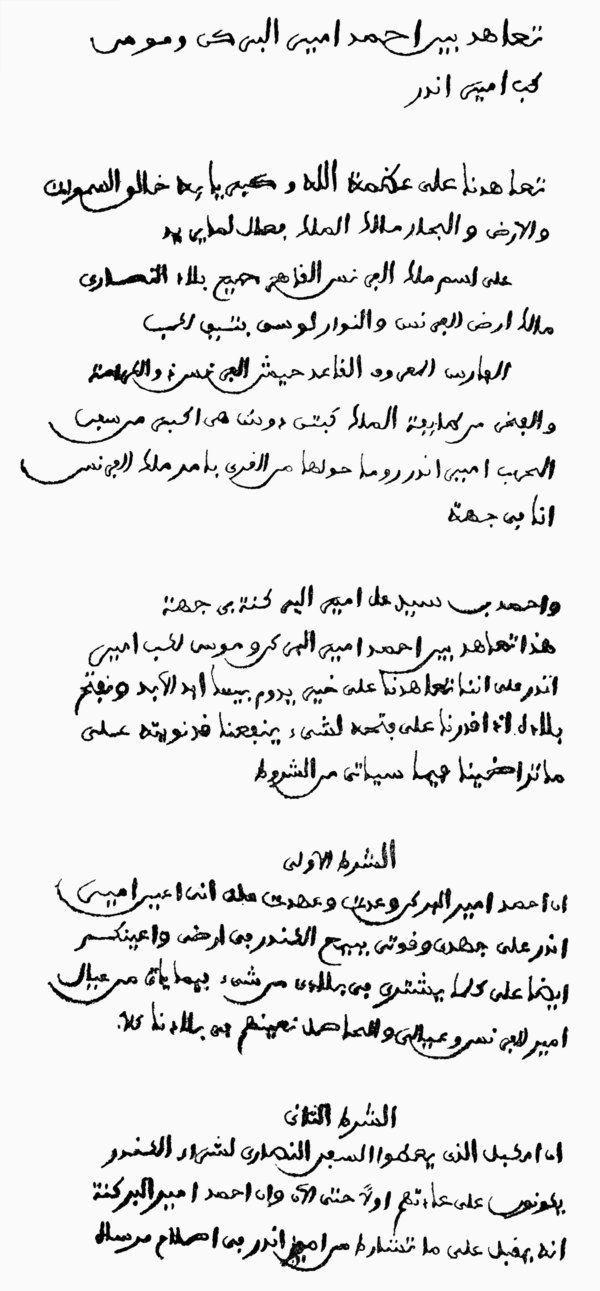 تعاهد بين احمد امير البركن وموسى
كب امير اندر
تعاهدنا على عظمة الله و كبريايه خالق السموت
والارض والبحار مالك الملك فعال لما يريد
على اسم ملك الفرنس القاهر جميع بلاد النصارى
مالك ارض الفرنس والنوار لوسى بتسيو لكب
الفارس المعروف القاعد جيش الفرنس والكهامة
والفحى من كمابيعة الملك كبتى دوشا هى الحبير من سعن
المحرب امير اندر وما حولها من القرى بامر ملك الفرنس
انا فى جهة
واحمد بن سيد عل امير البركنة فى جهة
هذا تعاهد بين احمد امير البركن وموسى لكب امير
اندر على اننا تعاهدنا على خير يدوم بيننا ابد الابد ونفتح
بلادا اذا قدرنا على فتحه لشىء ينفعنا قد نويته على
ما تراضينا فيما سياتى من الشروط
الشرط الاولى
ان احمد امير البركن وعدت وعهدت انى اعين امير
اندر على جهدى وقوتى ببيع الكندر فى ارضى واعينكم
ايضا على كلما يشترى فى بلادى من شىء فيما ياتى من عيال
امير الفرنس وعيالى والمعاهد نعينهم فى بلادنا كلا
الشرط الثانى
ان امر كبل الذى يعطوا السفن النصارى لشراء الكندر
يكونوا على عادتهم اولا حتى الان وان احمد امير البركنة
انه يقبل على ما تشارط من امير اندر فى اصلاح مرساه